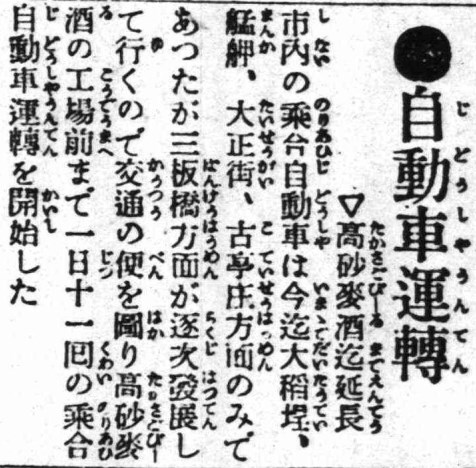 ●自動車運轉
▽高砂麥酒迄延長
市內の乘合自動車は今迄大稻埕、
艋舺、大正街、古亭庄方面のみで
あつたが三板橋方面が逐次發展し
て行くので交通の便を圖り高砂麥
酒の工場前まで一日十一囘の乘合
自動車運轉を開始した